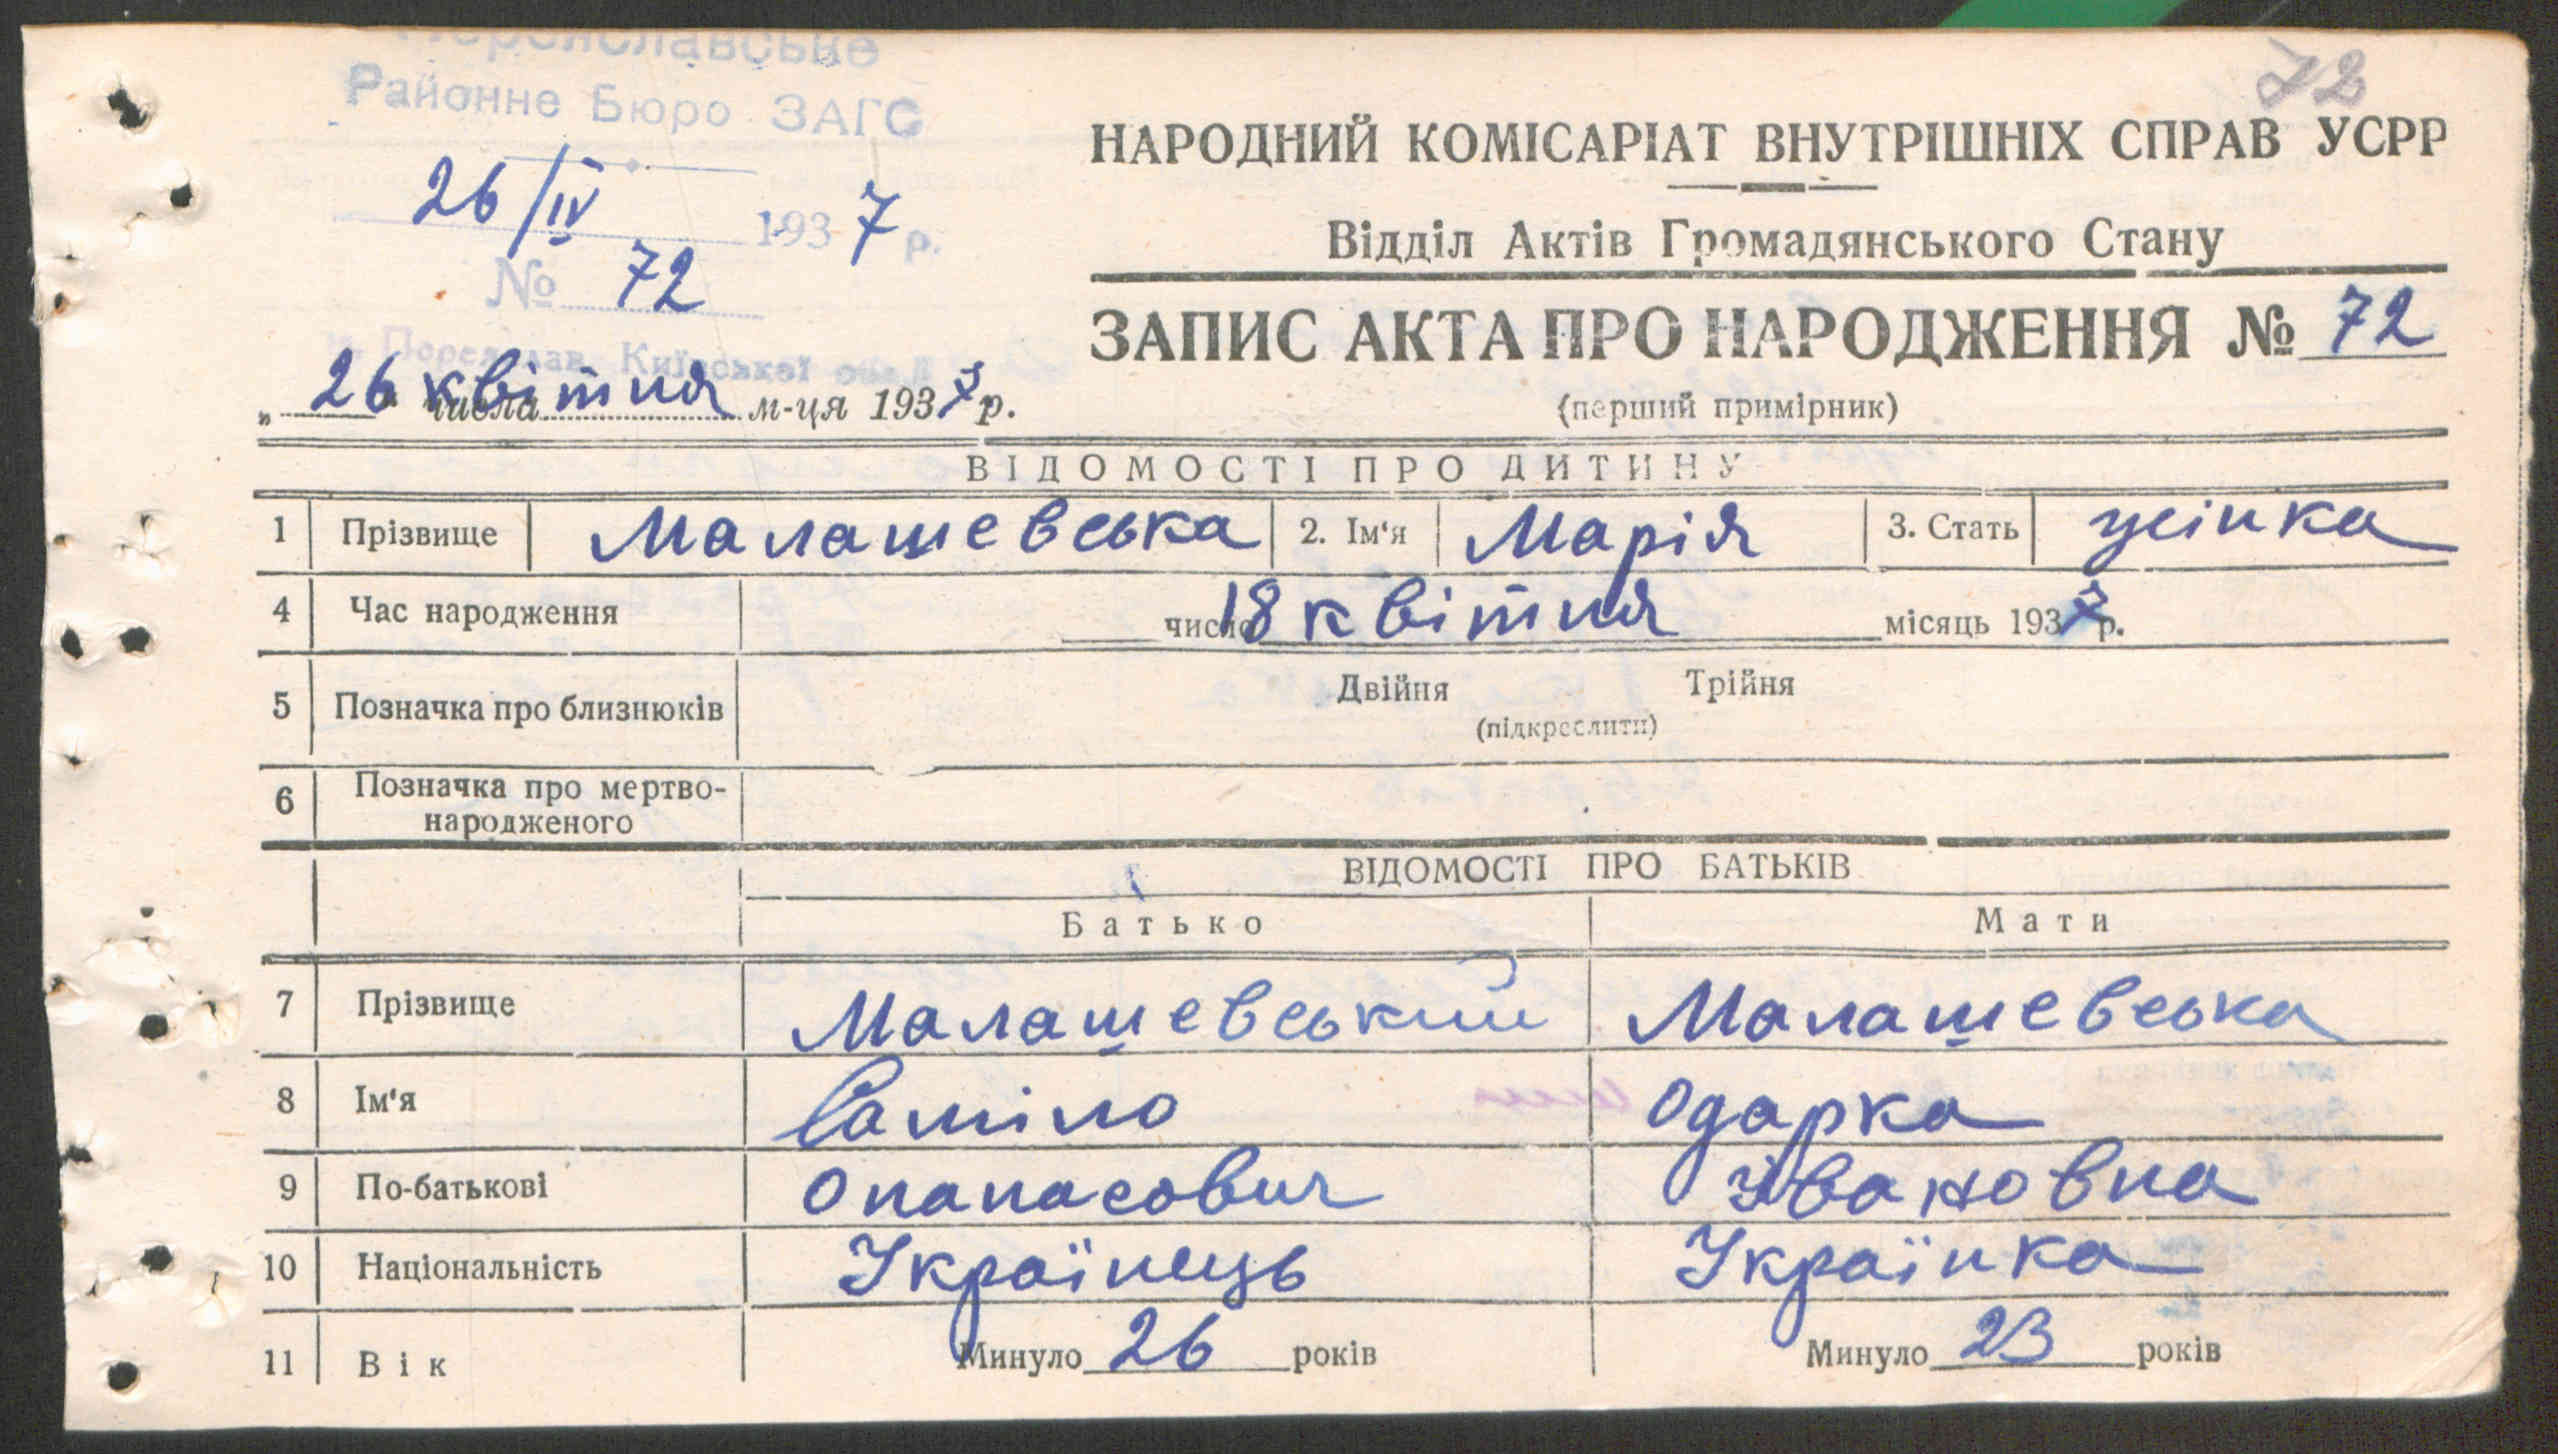 Переяславське
Районне Бюро ЗАГС
26/IV 1937 р.
№ 72
м. Переяслав, Київської обл.
72
НАРОДНИЙ КОМІСАРІАТ ВНУТРІШНІХ СПРАВ УСРР
Відділ Актів Громадянського Стану
ЗАПИС АКТА ПРО НАРОДЖЕННЯ № 72
(перший примірник)
„26" числа квітня м-ця 1937 р.
ВІДОМОСТІ ПРО ДИТИНУ
1 Прізвище Малашевська 2. Ім'я Марія 3. Стать жінка
4 Час народження число 18 квітня місяць 1937 р.
5 Позначка про близнюків Двійня Трійня
(підкреслити)
6 Позначка про мертво-
народженого
ВІДОМОСТІ ПРО БАТЬКІВ
Батько Мати
7 Прізвище Малашевський Малашевська
8 Ім'я Саміло Одарка
9 По-батькові Опанасович Івановна
10 Національність Українець Українка
11 Вік Минуло 26 років Минуло 23 років